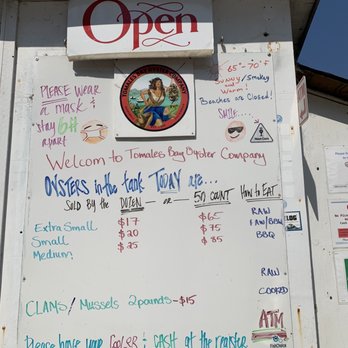 Open
65°-70°F
Sunny/Smokey
and
Warm!
Beaches are Closed!
SMILE...
PLEASE WEAR
a mask &
stay 6ft
apart
Welcome to Tomales Bay Oyster Company
OYSTERS in the tank TODAY are...
SOLD BY the DOZEN - OR - 50 COUNT How to EAT
Extra Small $17 $65 RAW
Small $20 $75 RAW/BBQ
Medium $25 $85 BBQ
RAW
COOKED
CLAMS/Mussels 2 pounds - $15
ATM
Please have your Cooler & CASH at the register